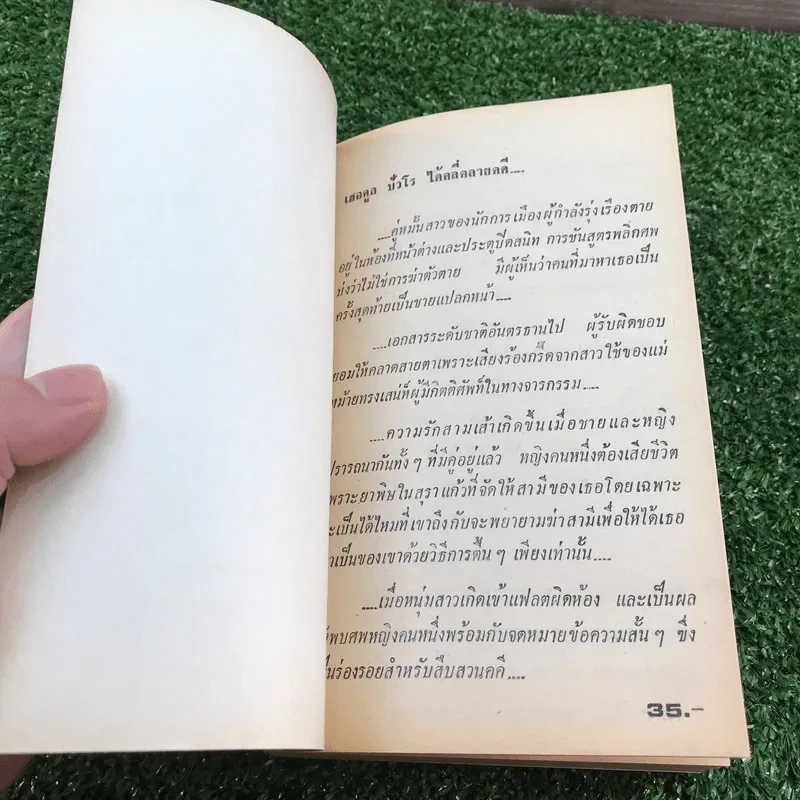 เฮลคูล ปัวโร ได้คลี่คลายคดี....
....คู่หมั้นสาวของนักการเมืองผู้กำลังรุ่งเรืองตาย
อยู่ในห้องที่หน้าต่างและประตูปิดสนิท การชันสูตรพลิกศพ
บ่งว่าไม่ใช่การฆ่าตัวตาย มีผู้เห็นว่าคนที่มาหาเธอเป็น
ครั้งสุดท้ายเป็นชายแปลกหน้า....
....เอกสารระดับชาติอันตรธานไป ผู้รับผิดชอบ
ยอมให้คลาดสายตาเพราะเสียงร้องกรี๊ดจากสาวใช้ของแม่
หม้ายทรงเสน่ห์ผู้มีกิตติศัพท์ในทางจารกรรม....
....ความรักสามเส้าเกิดขึ้นเมื่อชายและหญิง
ปรารถนากันทั้ง ๆ ที่มีคู่อยู่แล้ว หญิงคนหนึ่งต้องเสียชีวิต
เพราะยาพิษในสุราแก้วที่จัดให้สามีของเธอโดยเฉพาะ
จะเป็นได้ไหมที่เขาถึงกับจะพยายามฆ่าสามีเพื่อให้ได้เธอ
มาเป็นของเขาด้วยวิธีการตื้น ๆ เพียงเท่านั้น....
....เมื่อหนุ่มสาวเกิดเข้าแฟลตผิดห้อง และเป็นผล
ให้พบศพหญิงคนหนึ่งพร้อมกับจดหมายข้อความสั้น ๆ ซึ่ง
เป็นร่องรอยสำหรับสืบสวนคดี....
35.-